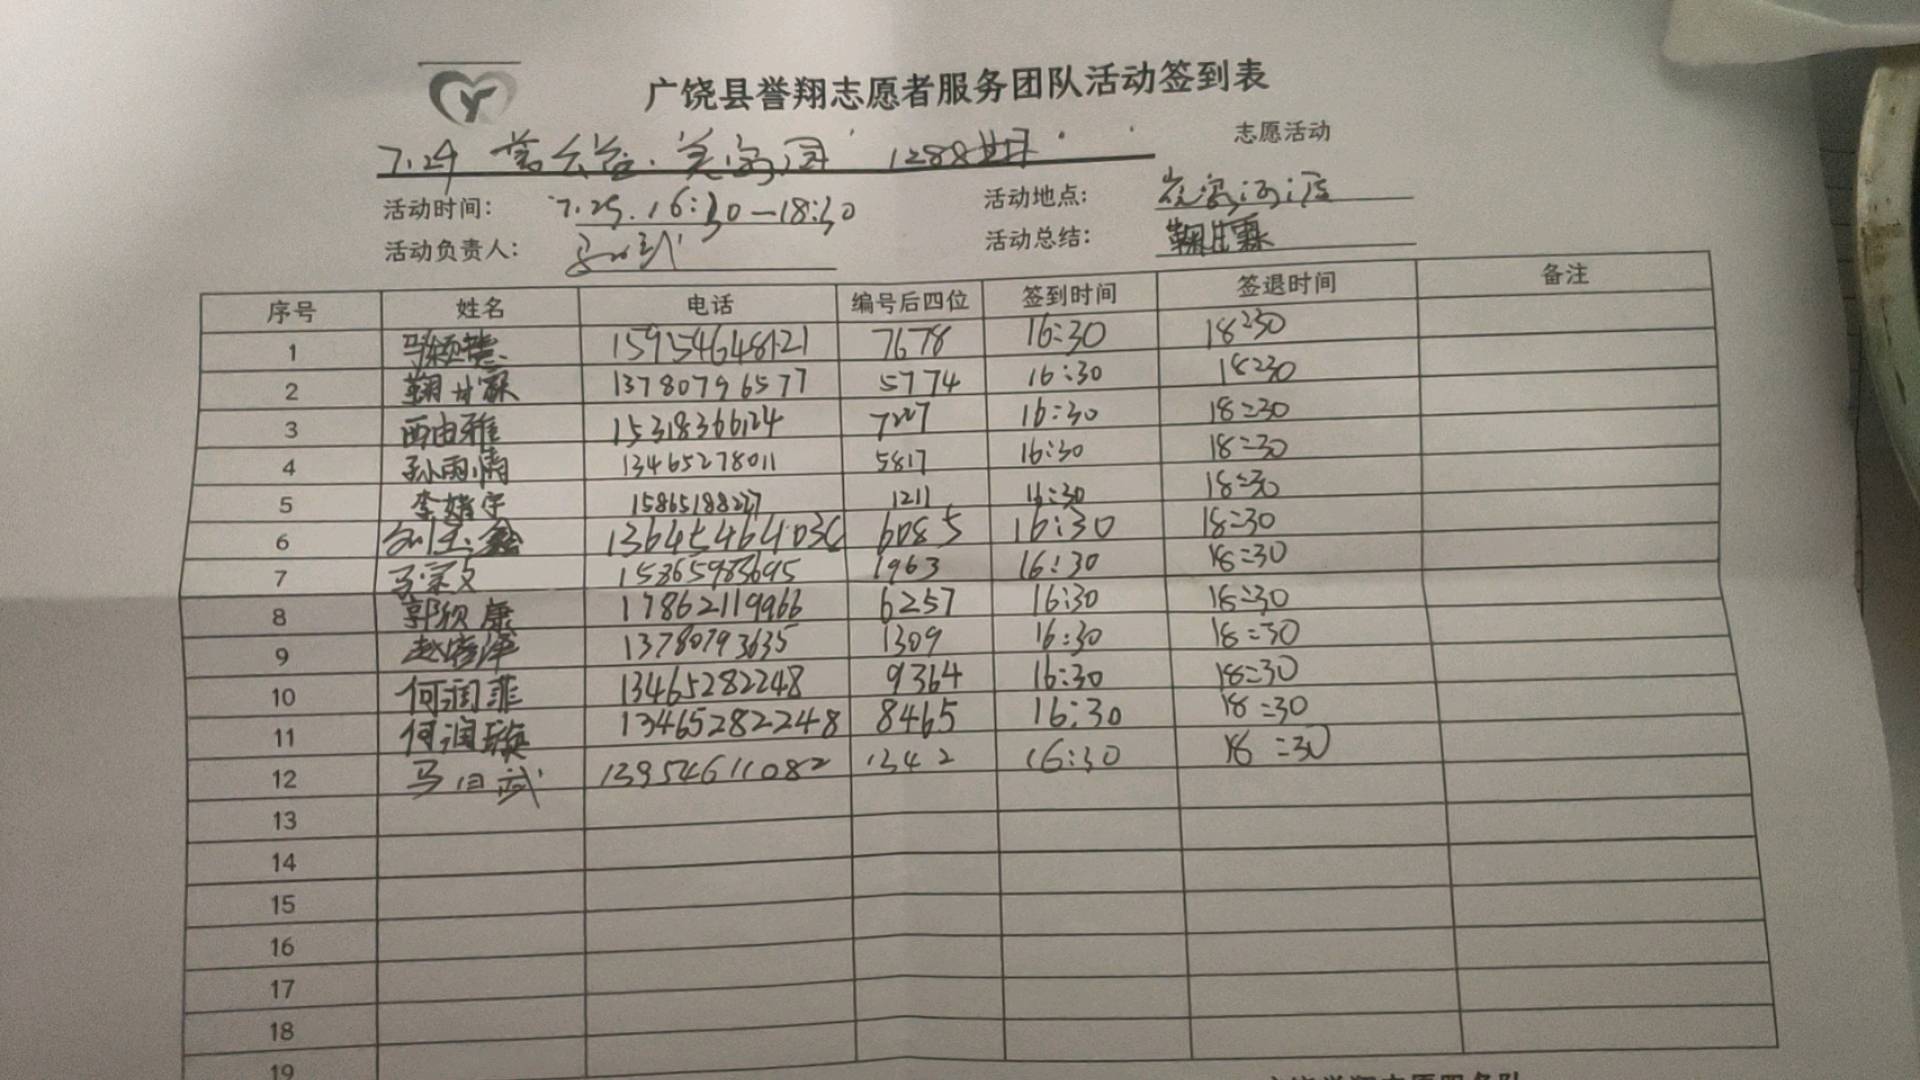 广饶县誉翔志愿者服务团队活动签到表
7.29 1288期 志愿活动
活动时间： 7.29.16:30—18:30 活动地点：
活动负责人： 活动总结：
序号 姓名 电话 编号后四位 签到时间 签退时间 备注
1 15954648121 7678 16:30 18:30
2 13780796577 5774 16:30 18:30
3 西由雅 15318366124 7227 16:30 18:30
4 孙雨倩 13465278011 5817 16:30 18:30
5 李婧宇 1211 16:30 18:30
6 6085 16:30 18:30
7 15865983695 1963 16:30 18:30
8 郭欣康 17862119966 6257 16:30 18:30
9 13780793635 1309 16:30 18:30
10 何润菲 13465282248 9364 16:30 18:30
11 何润璇 13465282248 8465 16:30 18:30
12 马日武 13954611082 1342 16:30 18:30
13
14
15
16
17
18
19